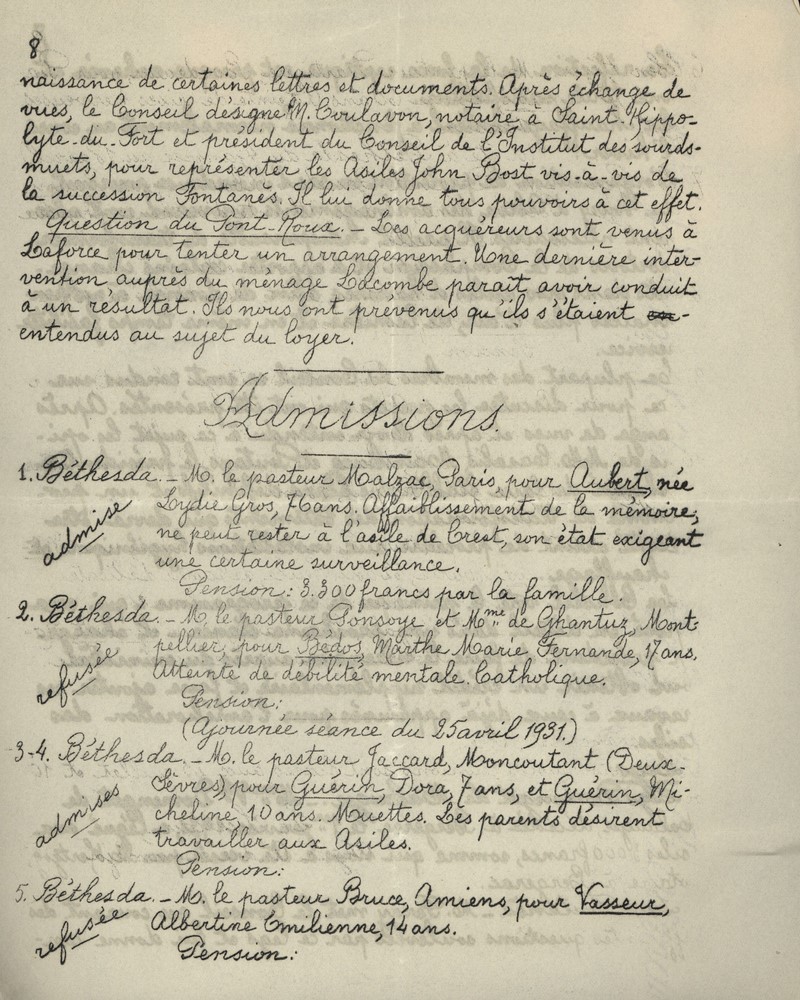 8
naissance de certaines lettres et documents. Après échange de
vues, le Conseil désigne M. Coulavon, notaire à Saint-Hippo-
lyte-du-Fort et président du Conseil de l'Institut des sourds-
muets, pour représenter les Asiles John Bost vis-à-vis de
la succession Fontanès. Il lui donne tous pouvoirs à cet effet.
Question du Pont-Roux. - Les acquéreurs sont venus à
Laforce pour tenter un arrangement. Une dernière inter-
vention auprès du ménage Lacombe paraît avoir conduit
à un résultat. Ils nous ont prévenus qu'ils s'étaient
entendus au sujet du loyer.
Admissions.
1. Béthesda. - M. le pasteur Malzac, Paris, pour Aubert, née
Lydie Gros, 76 ans. Affaiblissement de la mémoire,
admise
ne peut rester à l'asile de Crest, son état exigeant
une certaine surveillance.
Pension: 3.300 francs par la famille.
2. Béthesda. - M. le pasteur Ponsoye et Mme de Ghantuz, Mont-
pellier, pour Bédos, Marthe Marie Fernande, 17 ans.
refusée
Atteinte de débilité mentale. Catholique.
Pension:
(Ajournée séance du 25 avril 1931.)
3-4. Béthesda. - M. le pasteur Jaccard, Moncoutant (Deux-
Sèvres) pour Guérin, Dora, 7 ans, et Guérin, Mi-
admises
cheline, 10 ans. Muettes. Les parents désirent
travailler aux Asiles.
Pension:
5. Béthesda. - M. le pasteur Bruce, Amiens, pour Vasseur,
refusée
Albertine Emilienne, 14 ans.
Pension: